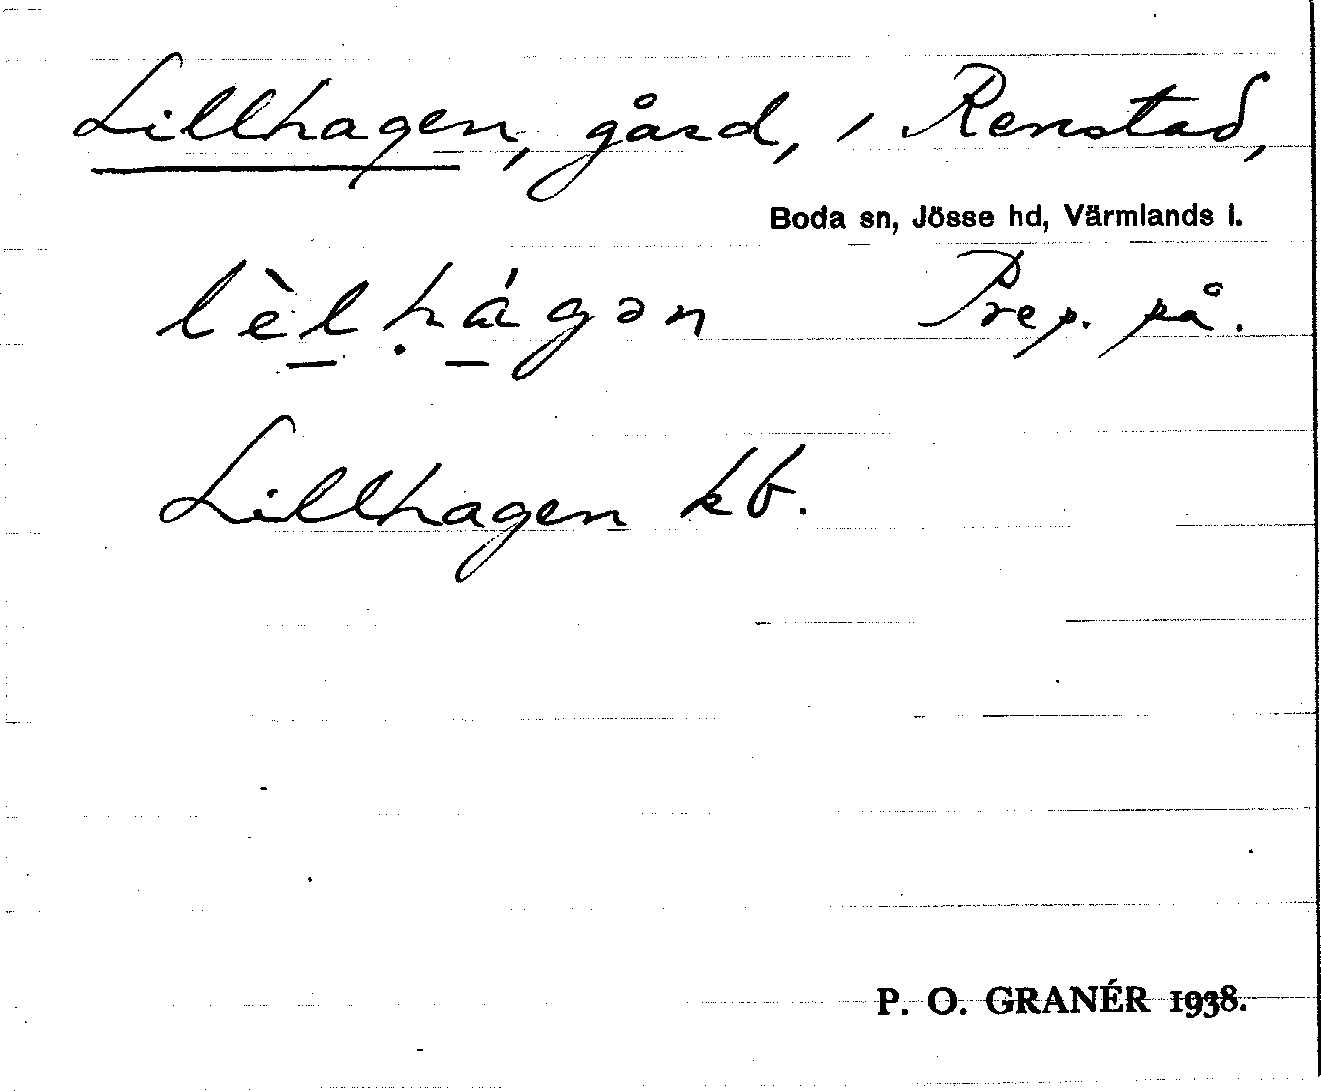 Lillhagen, gård, i Renstad,
Boda sn, Jösse hd, Värmlands l.
lèl̠ḥá̠gən Prep. på.
Lillhagen kb.
P. O. GRANÉR 1938.